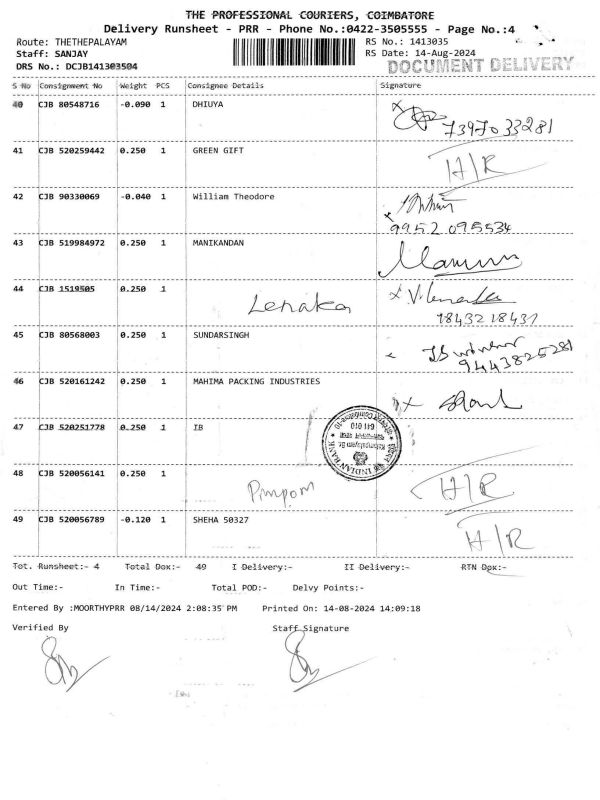 THE PROFESSIONAL COURIERS, COIMBATORE
Delivery Runsheet - PRR - Phone No.:0422-3505555 - Page No.:4
Route: THETHEPALAYAM RS No.: 1413035
Staff: SANJAY RS Date: 14-Aug-2024
DRS No.: DCJB141303504 DOCUMENT DELIVERY
S No Consignment No Weight PCS Consignee Details Signature
40 CJB 80548716 -0.090 1 DHIUYA
7397033281
41 CJB 520259442 0.250 1 GREEN GIFT
H/R
42 CJB 90330069 -0.040 1 William Theodore
9952 095534
43 CJB 519984972 0.250 1 MANIKANDAN
44 CJB 1519505 0.250 1
Lenaka
9843218437
45 CJB 80568003 0.250 1 SUNDARSINGH
9443825281
46 CJB 520161242 0.250 1 MAHIMA PACKING INDUSTRIES
47 CJB 520251778 0.250 1 IB
INDIAN BANK
641 010
48 CJB 520056141 0.250 1
Pimpom H/R
49 CJB 520056789 -0.120 1 SHEHA 50327
H/R
Tot. Runsheet:- 4 Total Dox:- 49 I Delivery:- II Delivery:- RTN Dox:-
Out Time:- In Time:- Total POD:- Delvy Points:-
Entered By :MOORTHYPRR 08/14/2024 2:08:35 PM Printed On: 14-08-2024 14:09:18
Verified By Staff Signature